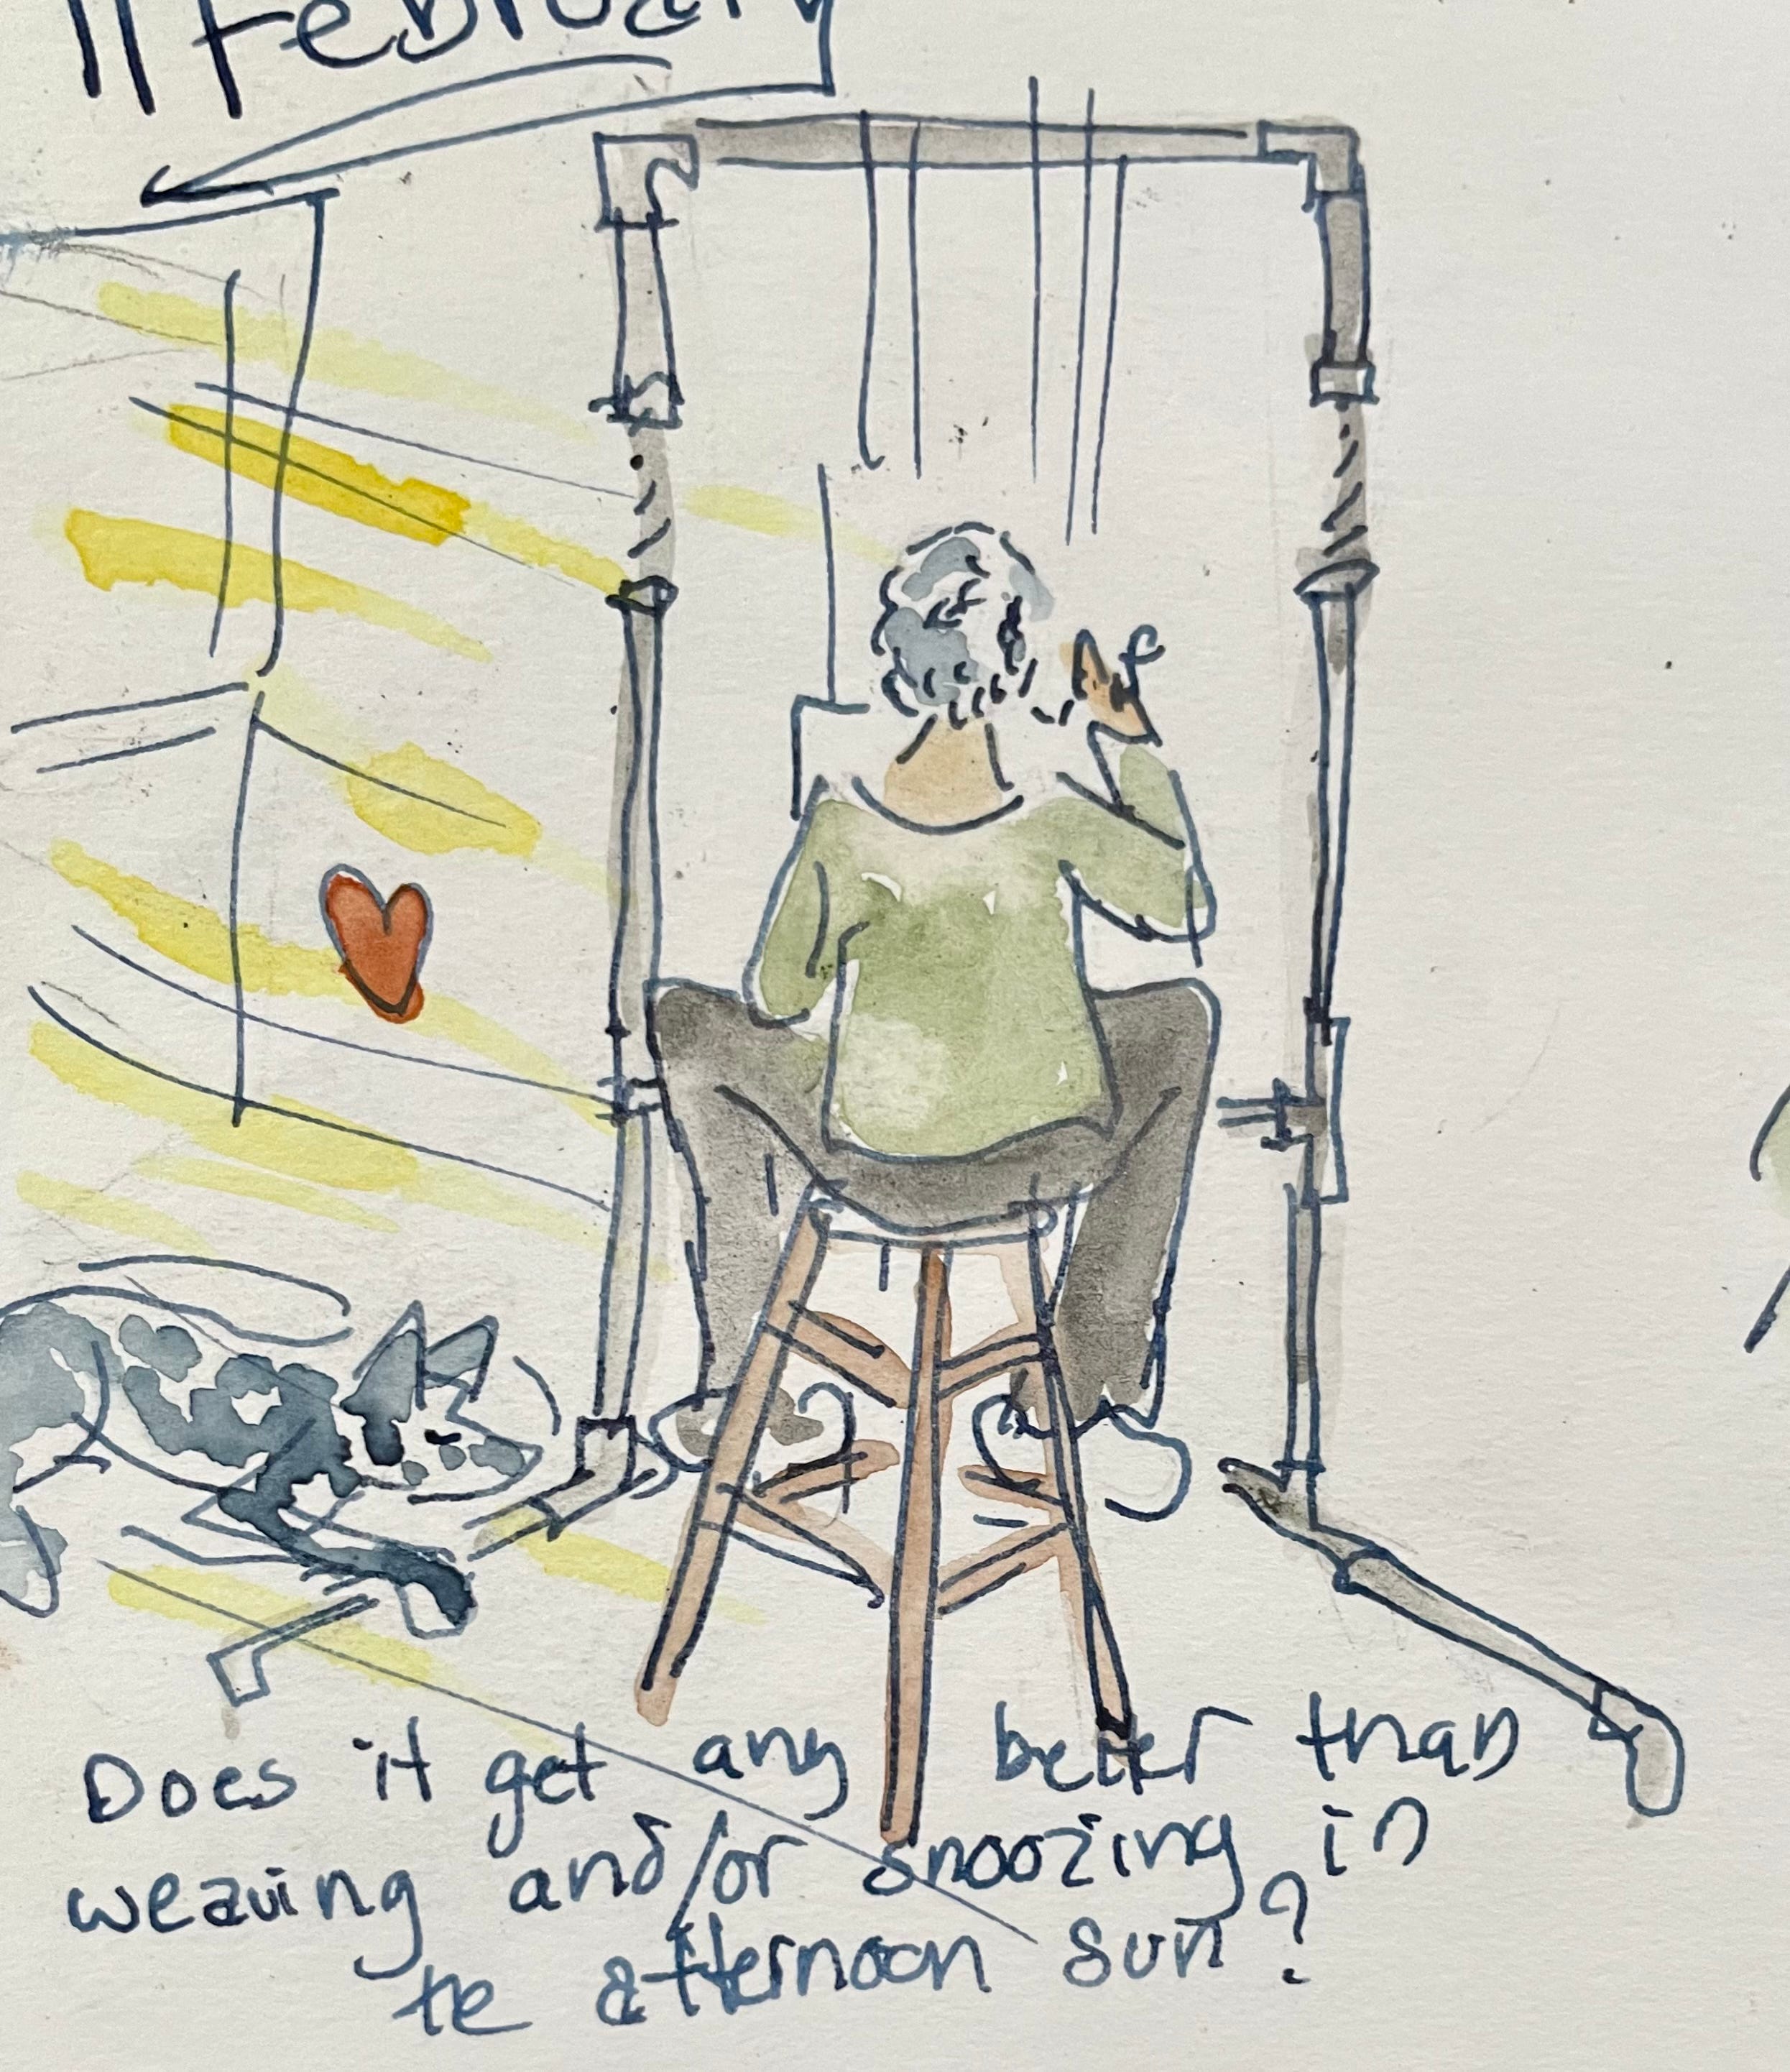 11 February
Does it get any better than
weaving and/or snoozing in
te afternoon sun?